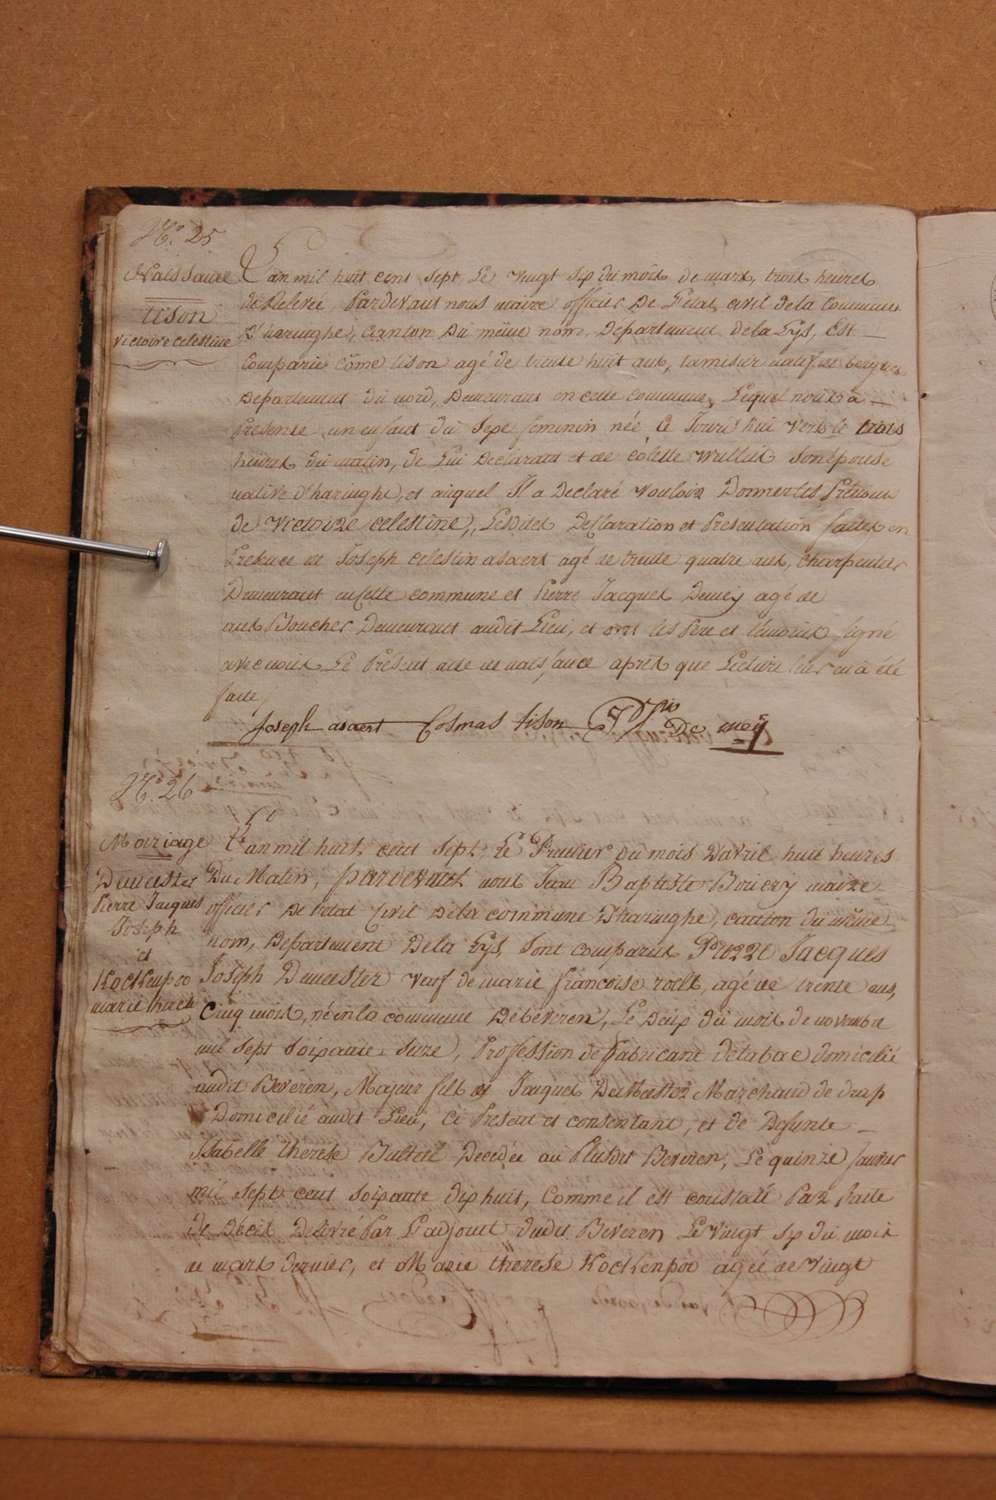 N.o 25
Naissance
tison
victoire celestine
L'an mil huit cent sept Le vingt six du mois de mars, trois heures
de Relevée Pardevant nous maire officier De L'état civil de la Commune
d'haringhe, Canton Du même nom, Departement de la Lys, Est
Comparu Côme tison agé de trente huit ans, tamisier natif de bergues
Departement du nord, Demeurant en cette Commune, Lequel nous a
Presenté un enfant du Sexe feminin née, Ce Jourd'hui vers le trois
heures du matin, de Lui Declarant et de colette Wullus Son épouse
native d'haringhe, et auquel Il a Declaré vouloir Donner les Prénoms
de Victoire celestine, Lesdites Declaration et Presentation faites en
Presence de Joseph celestin asaert agé de trente quatre ans, Charpentier
Demeurant en cette commune et Pierre Jacques Demey agé de
ans Boucher Demeurant audit Lieu, et ont les Pere et temoins signé
avec nous Le Present acte de naissance après que Lecture leur en a été
faite
Joseph asaert Cosmas tison De meÿ
N.o 26
Mariage
Demester
Pierre Jacques
Joseph
et
Kockenpoo
marie therese
L'an mil huit cent sept, Le Premier Du mois D'avril huit heures
Du Matin, Pardevant nous Jean Baptiste Bouery maire
officier De l'état Civil De la commune d'haringhe, canton du même
nom, Departement De la Lys, Sont comparus Pierre Jacques
Joseph Demester veuf de marie françoise roels, agé de trente ans,
Cinq mois, né en la commune De beveren, Le Dix du mois de novembre
mil sept soixante Seize, Profession de fabricant de tabac domicilié
audit Beveren, Majeur fils de Jacques Demester Marchand de drap
Domicilié audit Lieu, Ci Present et consentant, et de Defunte
Isabelle therese Decedée au Beveren, Le quinze
mil sept cent soixante dix huit, Comme il est constaté Par l'acte
de Décès Delivré Par L'adjoint dudit Beveren Le vingt six du mois
de mars dernier, et Marie therese Kockenpoo agée de Vingt